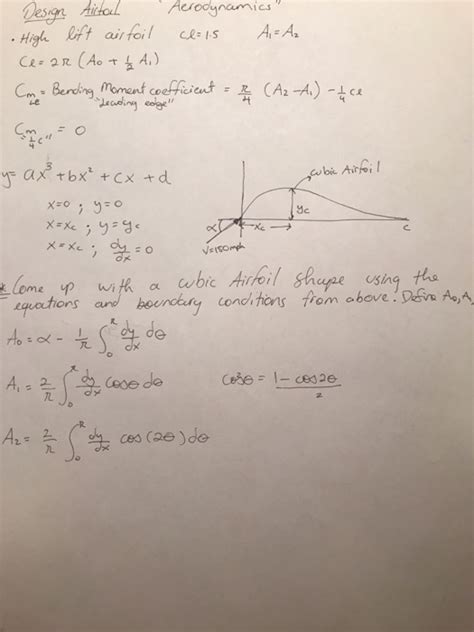 Design Airfoil "Aerodynamics"
• High lift airfoil Cl=1.5 A₁=A₂
Cl = 2π (A₀ + ½ A₁)
C_m_LE = Bending Moment coefficient = π/4 (A₂-A₁) - ¼ cl
"Leading edge"
C_m_"¼c" = 0
y = ax³ + bx² + cx + d
x=0 ; y=0
x=x_c ; y=y_c
x=x_c ; dy/dx = 0
cubic Airfoil
y_c
α
x_c
c
V=150mph
* Come up with a cubic Airfoil shape using the
equations and boundary conditions from above. Define A₀, A,
A₀ = α - 1/π ∫₀^π dy/dx dθ
A₁ = 2/π ∫₀^π dy/dx cosθ dθ cos²θ = 1-cos2θ/2
A₂ = 2/π ∫₀^π dy/dx cos(2θ) dθ